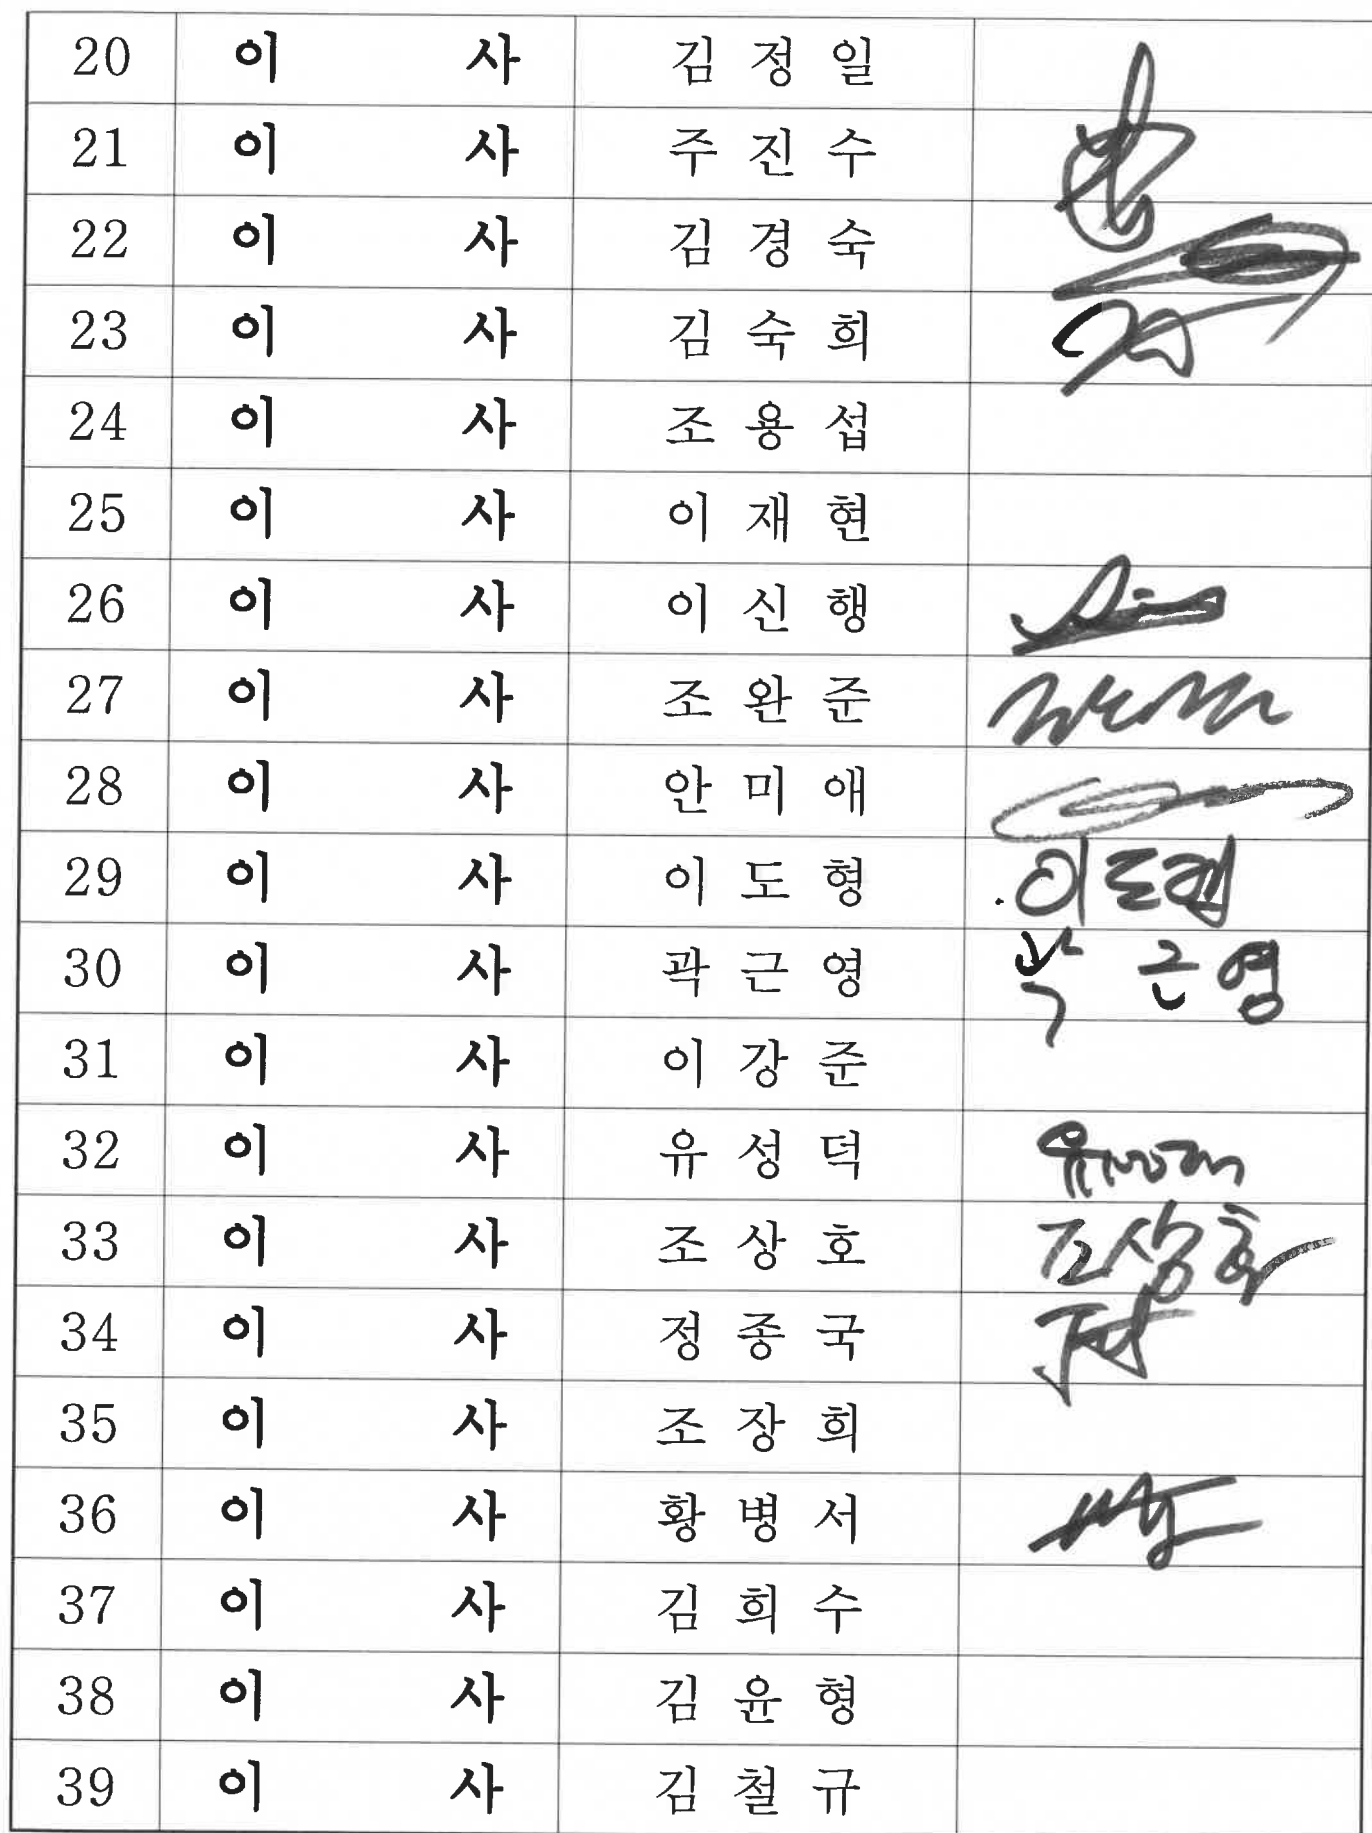 20 이 사 김 정 일
21 이 사 주 진 수
22 이 사 김 경 숙
23 이 사 김 숙 희
24 이 사 조 용 섭
25 이 사 이 재 현
26 이 사 이 신 행
27 이 사 조 완 준
28 이 사 안 미 애
29 이 사 이 도 형 이도형
30 이 사 곽 근 영 곽 근 영
31 이 사 이 강 준
32 이 사 유 성 덕
33 이 사 조 상 호 조상호
34 이 사 정 종 국
35 이 사 조 장 희
36 이 사 황 병 서
37 이 사 김 희 수
38 이 사 김 윤 형
39 이 사 김 철 규